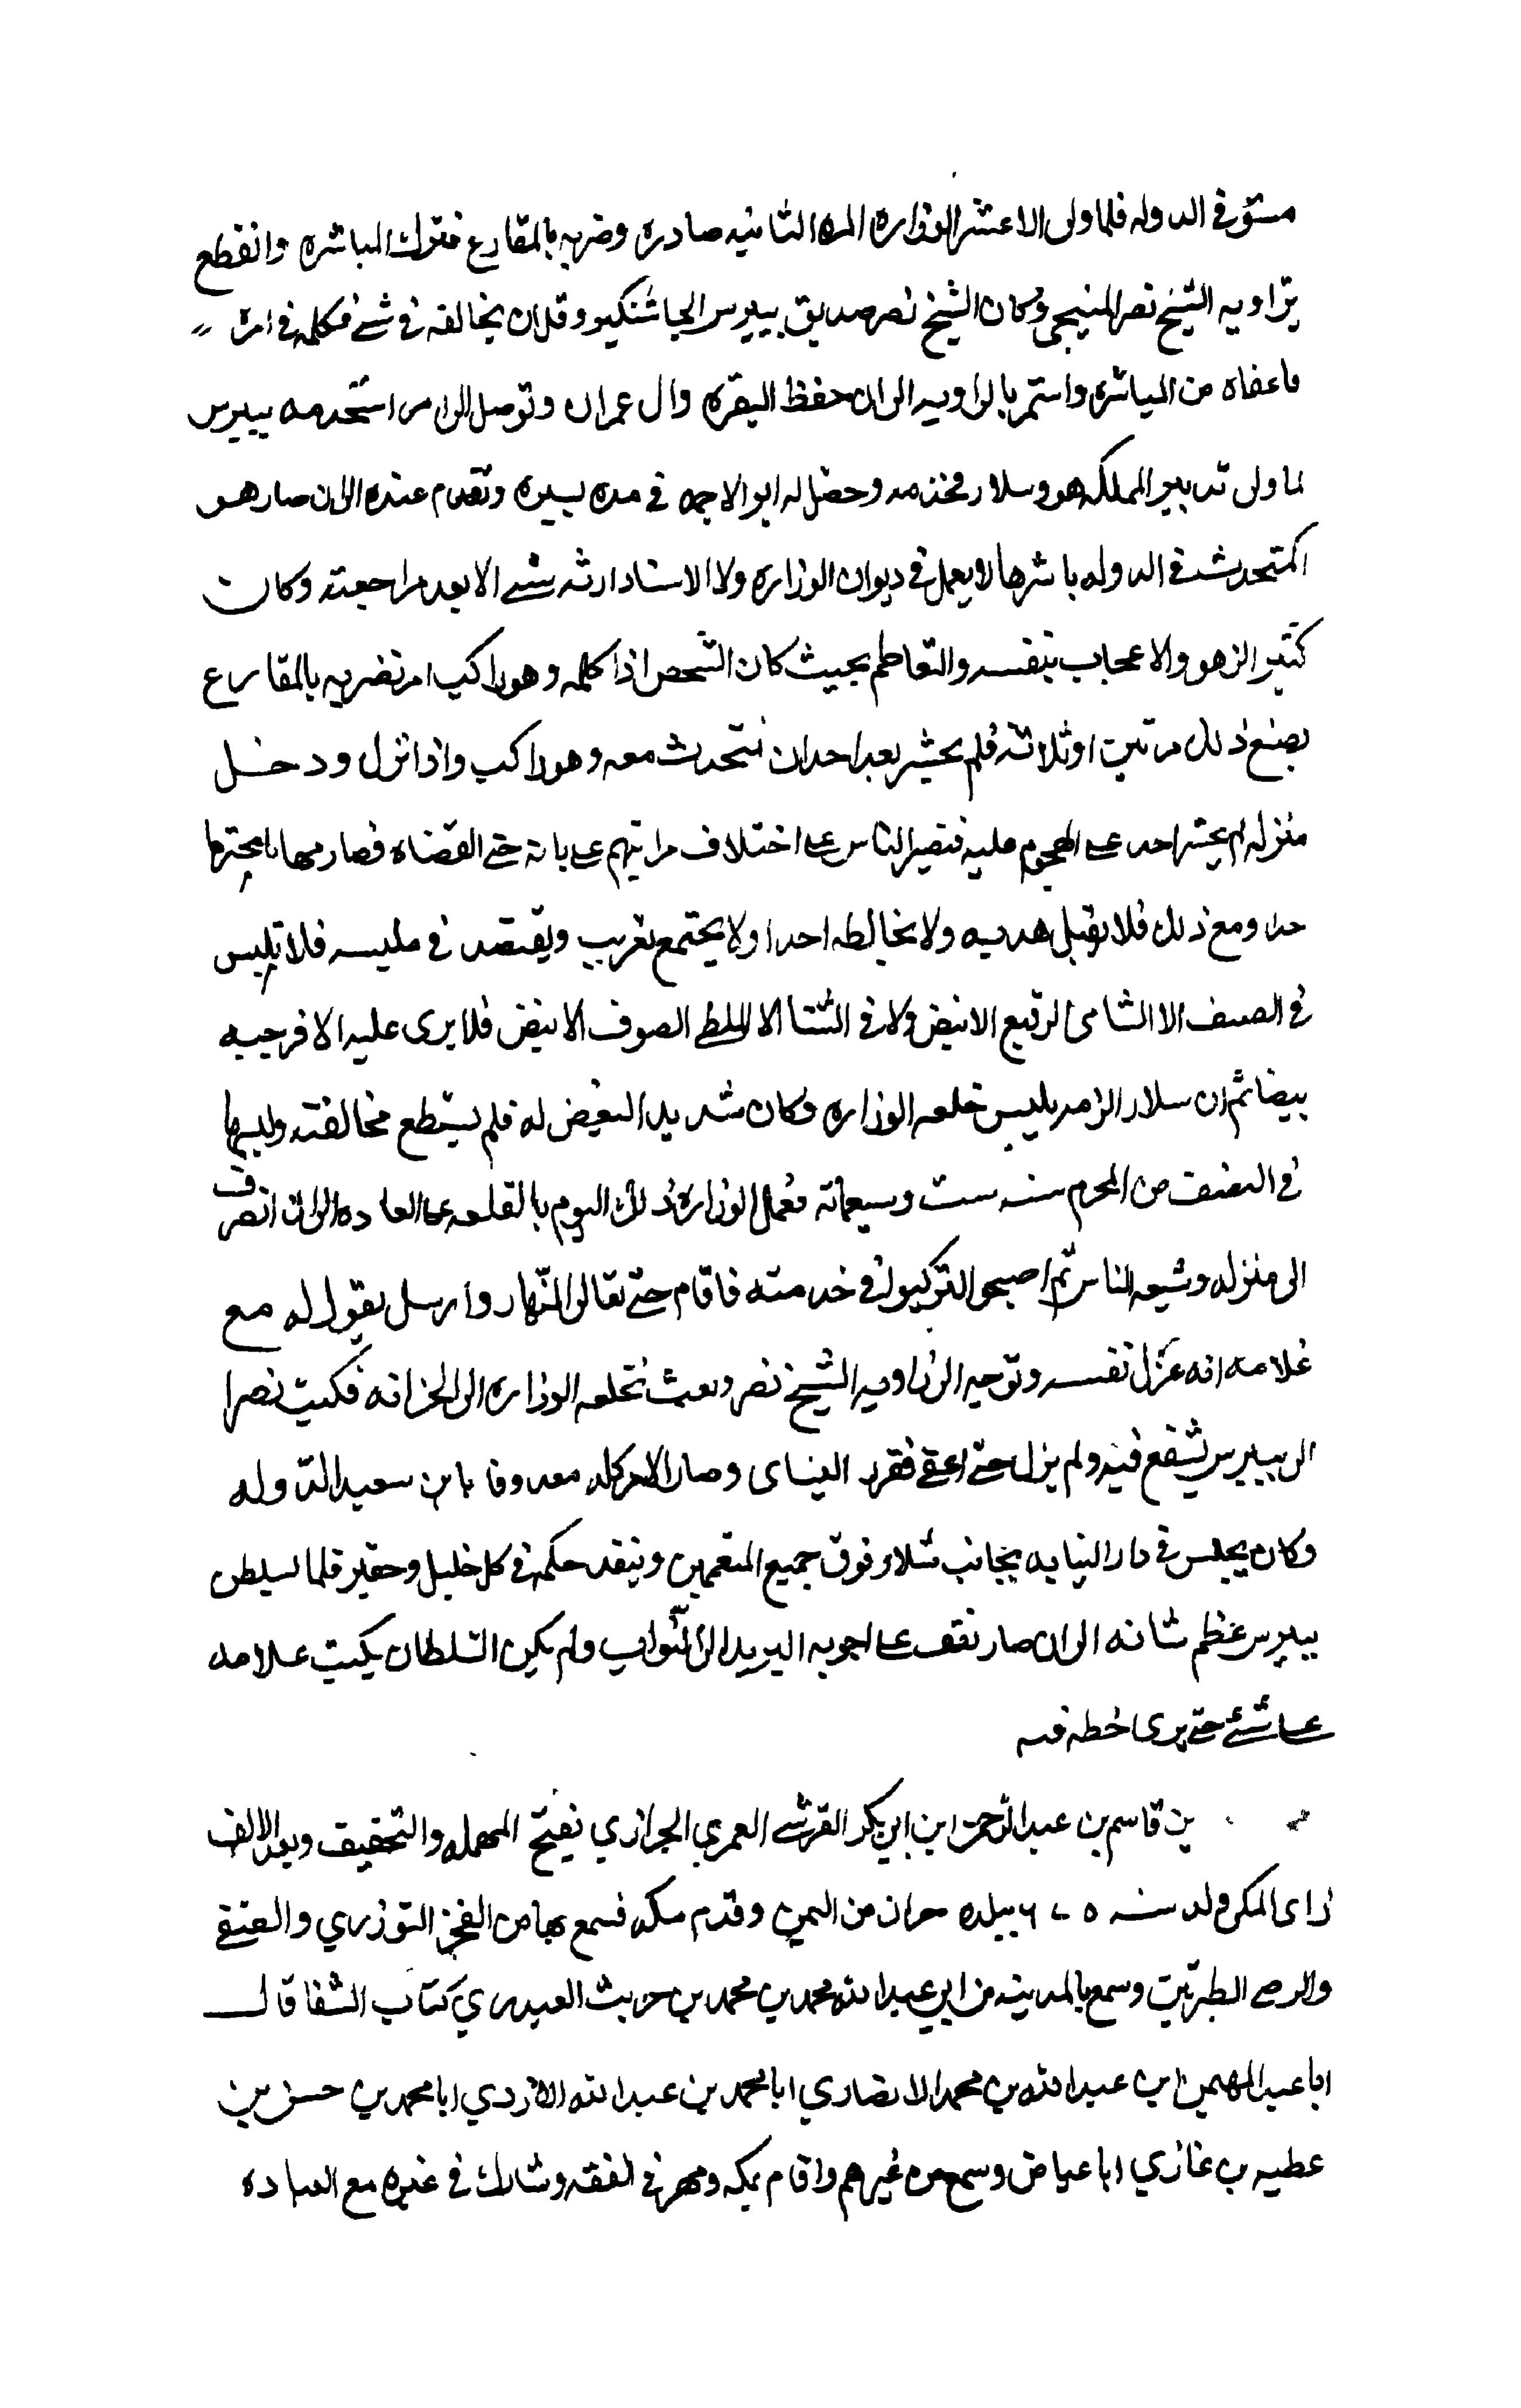 مستوفى الدوله فلما ولى الاعسر الوزاره المره الثانيه صادره وضربه بالمقارع فترك المباشره وانقطع
بزاويه الشيخ نصر المنبجي وكان الشيخ نصر صديق بيبرس الجاشنكير وقل ان يخالفه في شئ فكلمه في امره
فاعفاه من المباشره واستمر بالزاويه الى ان حفظ البقره وال عمران وتوصل الى ان استخدمه بيبرس
لما ولى تدبير المملكه هو وسلار فخدمه وحصل له اموالا جمه في مده يسيره وتقدم عنده الى ان صار هو
المتحدث في الدوله باسرها لا يعمل في ديوان الوزاره ولا الاستادارته شئ الا بعد مراجعته وكان
كثير الزهو والاعجاب بنفسه والتعاظم بحيث كان الشخص اذا كلمه وهو راكب امر بضربه بالمقارع
يصنع ذلك مرتين او ثلاثه فلم يجسر بعد احد ان يتحدث معه وهو راكب واذا نزل ودخل
منزله لم يجسر احد على الهجوم عليه فتصير الناس على اختلاف مراتبهم على بابه حتى القضاه فصار مهابا محترما
جدا ومع ذلك فلا يقبل هديه ولا يخالطه احدا ولا يجتمع بغريب ويقتصد في ملبسه فلا يلبس
في الصيف الا الشامي الرفيع الابيض ولا في الشتا الا الملطي الصوف الابيض فلا يرى عليه الا فرجيه
بيضا ثم ان سلار الزمه بلبس خلعه الوزاره وكان شديد البغض له فلم يستطع مخالفته ولبسها
في النصف من المحرم سنه ست وسبعمائة فعمل الوزاره ذلك اليوم بالقلعه على العاده الى ان انصرف
الى منزله وشيعه الناس ثم اصبحوا لتركبوا في خدمته فاقام حتى تعالى النهار وارسل يقول له مع
غلامه انه عزل نفسه وتوجه الى زاويه الشيخ نصر وبعث بخلعه الوزاره الى الخزانه فكتب نصرا
الى بيبرس يشفع فيه ولم يزل حتى اعفى فقرر وصار الامر كله معدوقا بابن سعيد الدوله
وكان يجلس في دار النيابه بجانب سلار فوق جميع المتعممين وينفذ حكمه في كل جليل وحقير فلما تسلطن
بيبرس عظم شانه الى ان صار يقف على اجوبه البريد الى النواب ولم يكن السلطان يكتب علامه
على شئ حتى يرى خطه فيه
بن قاسم بن عبد الرحمن ابن ابي بكر القرشي العمري الحرازي بفتح المهمله والتخفيف وبعد الالف
زاى المكي ولد سنه ٦٧٥ ببلده حران من اليمن وقدم مكه فسمع بها من الفخر التوزري والصفي
والرضى الطبريين وسمع بالمدينه من ابي عبد الله محمد بن محمد بن حريث العبدري كتاب الشفا قال
ابا عبد المهيمن ابن عبد الله بن محمد الانصاري ابا محمد بن عبد الله الازدي ابا محمد بن حسن بن
عطيه بن غازي ابا عياض وسمع من غيرهم واقام بمكه ومهر في الفقه وشارك في غيره مع العباده